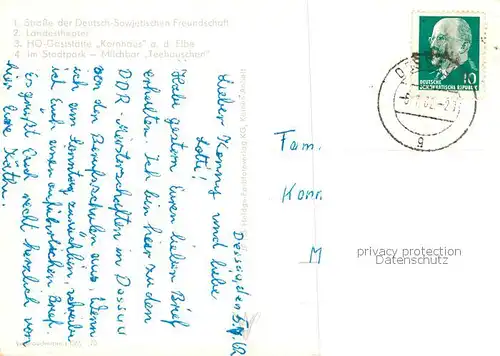 1. Straße der Deutsch-Sowjetischen Freundschaft
2. Landestheater
3. HO-Gaststätte „Kornhaus" a. d. Elbe
4. Im Stadtpark – Milchbar „Teehäuschen"
Dessau, den 5.7.62
Lieber Konny und liebe
Lotti!
Habe gestern Euren lieben Brief
erhalten. Ich bin hier zu den
DDR-Meisterschaften in Dessau
von den Berufsschulen aus. Wenn
ich am Sonntag zurückbin, schreibe
ich Euch einen ausführlichen Brief.
Es grüßt Euch recht herzlich von
hier Eure Käthi.
Fam.
Konr.
M
DEUTSCHE
DEMOKRATISCHE REPUBLIK
10
g
privacy protection
Datenschutz